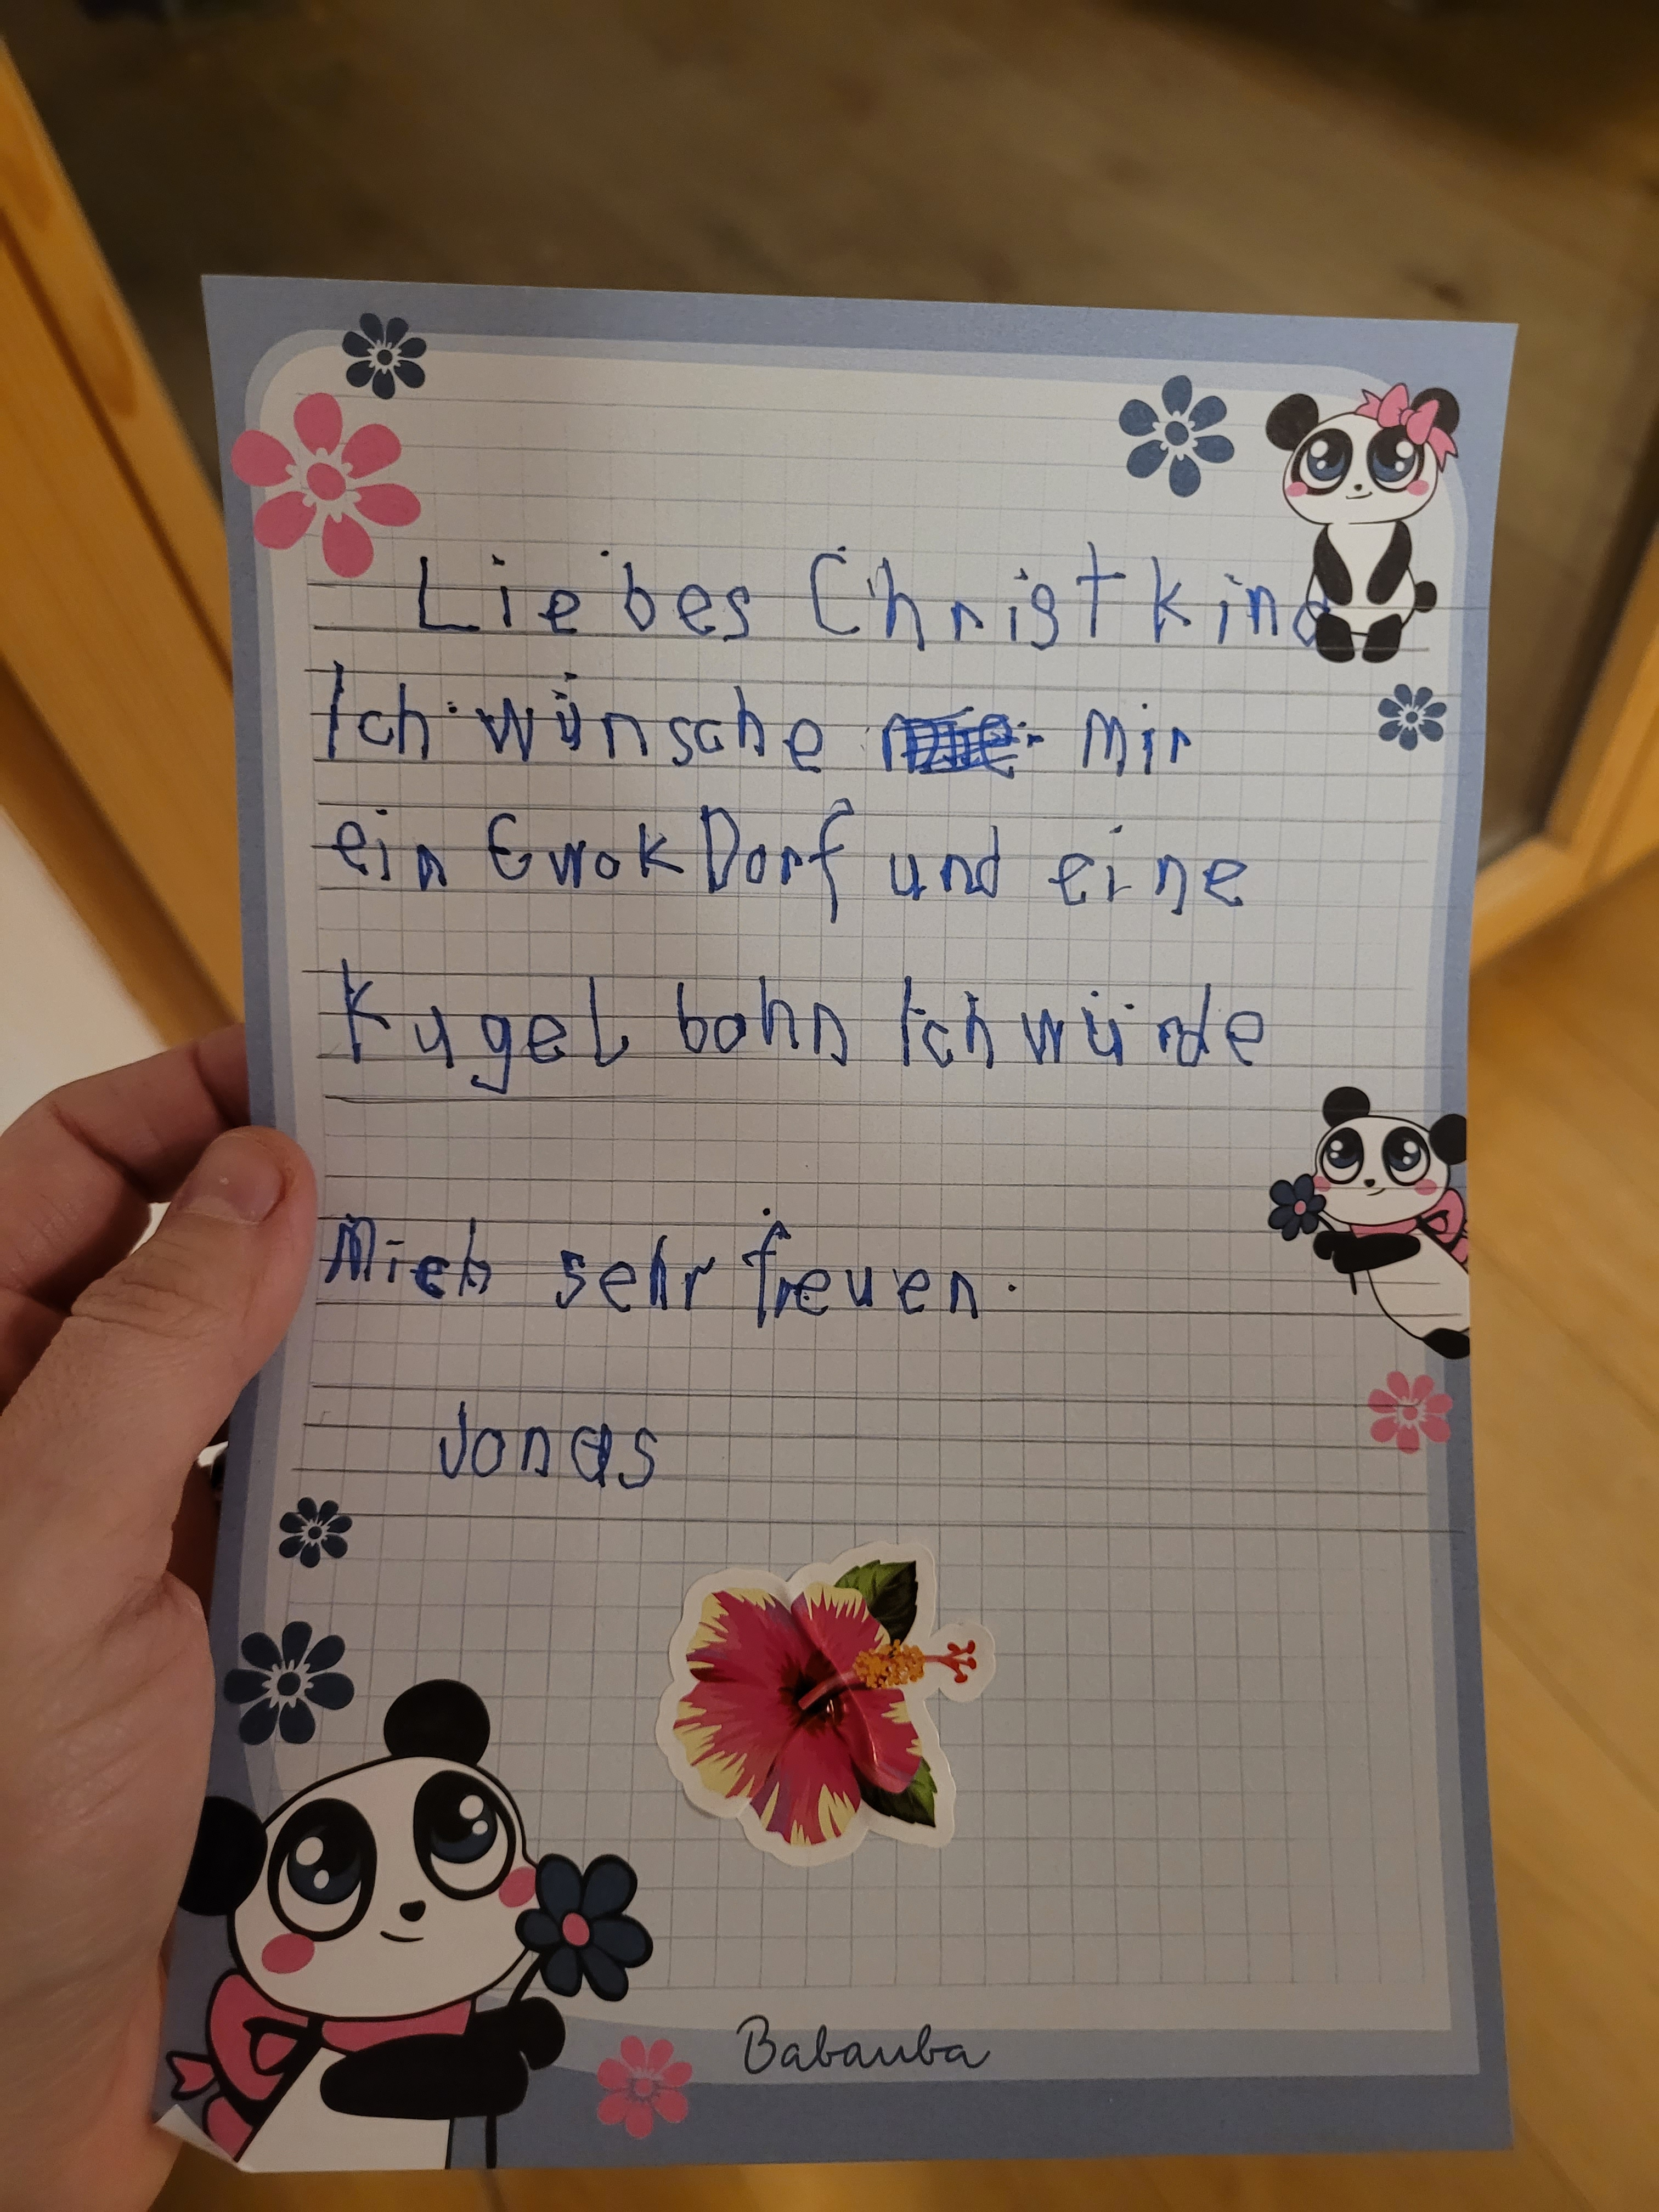 Liebes Christkind
Ich wünsche Mir
ein Ewok Dorf und eine
Kugel bahn Ich würde
Mich sehr freuen.
Jonas
Babauba